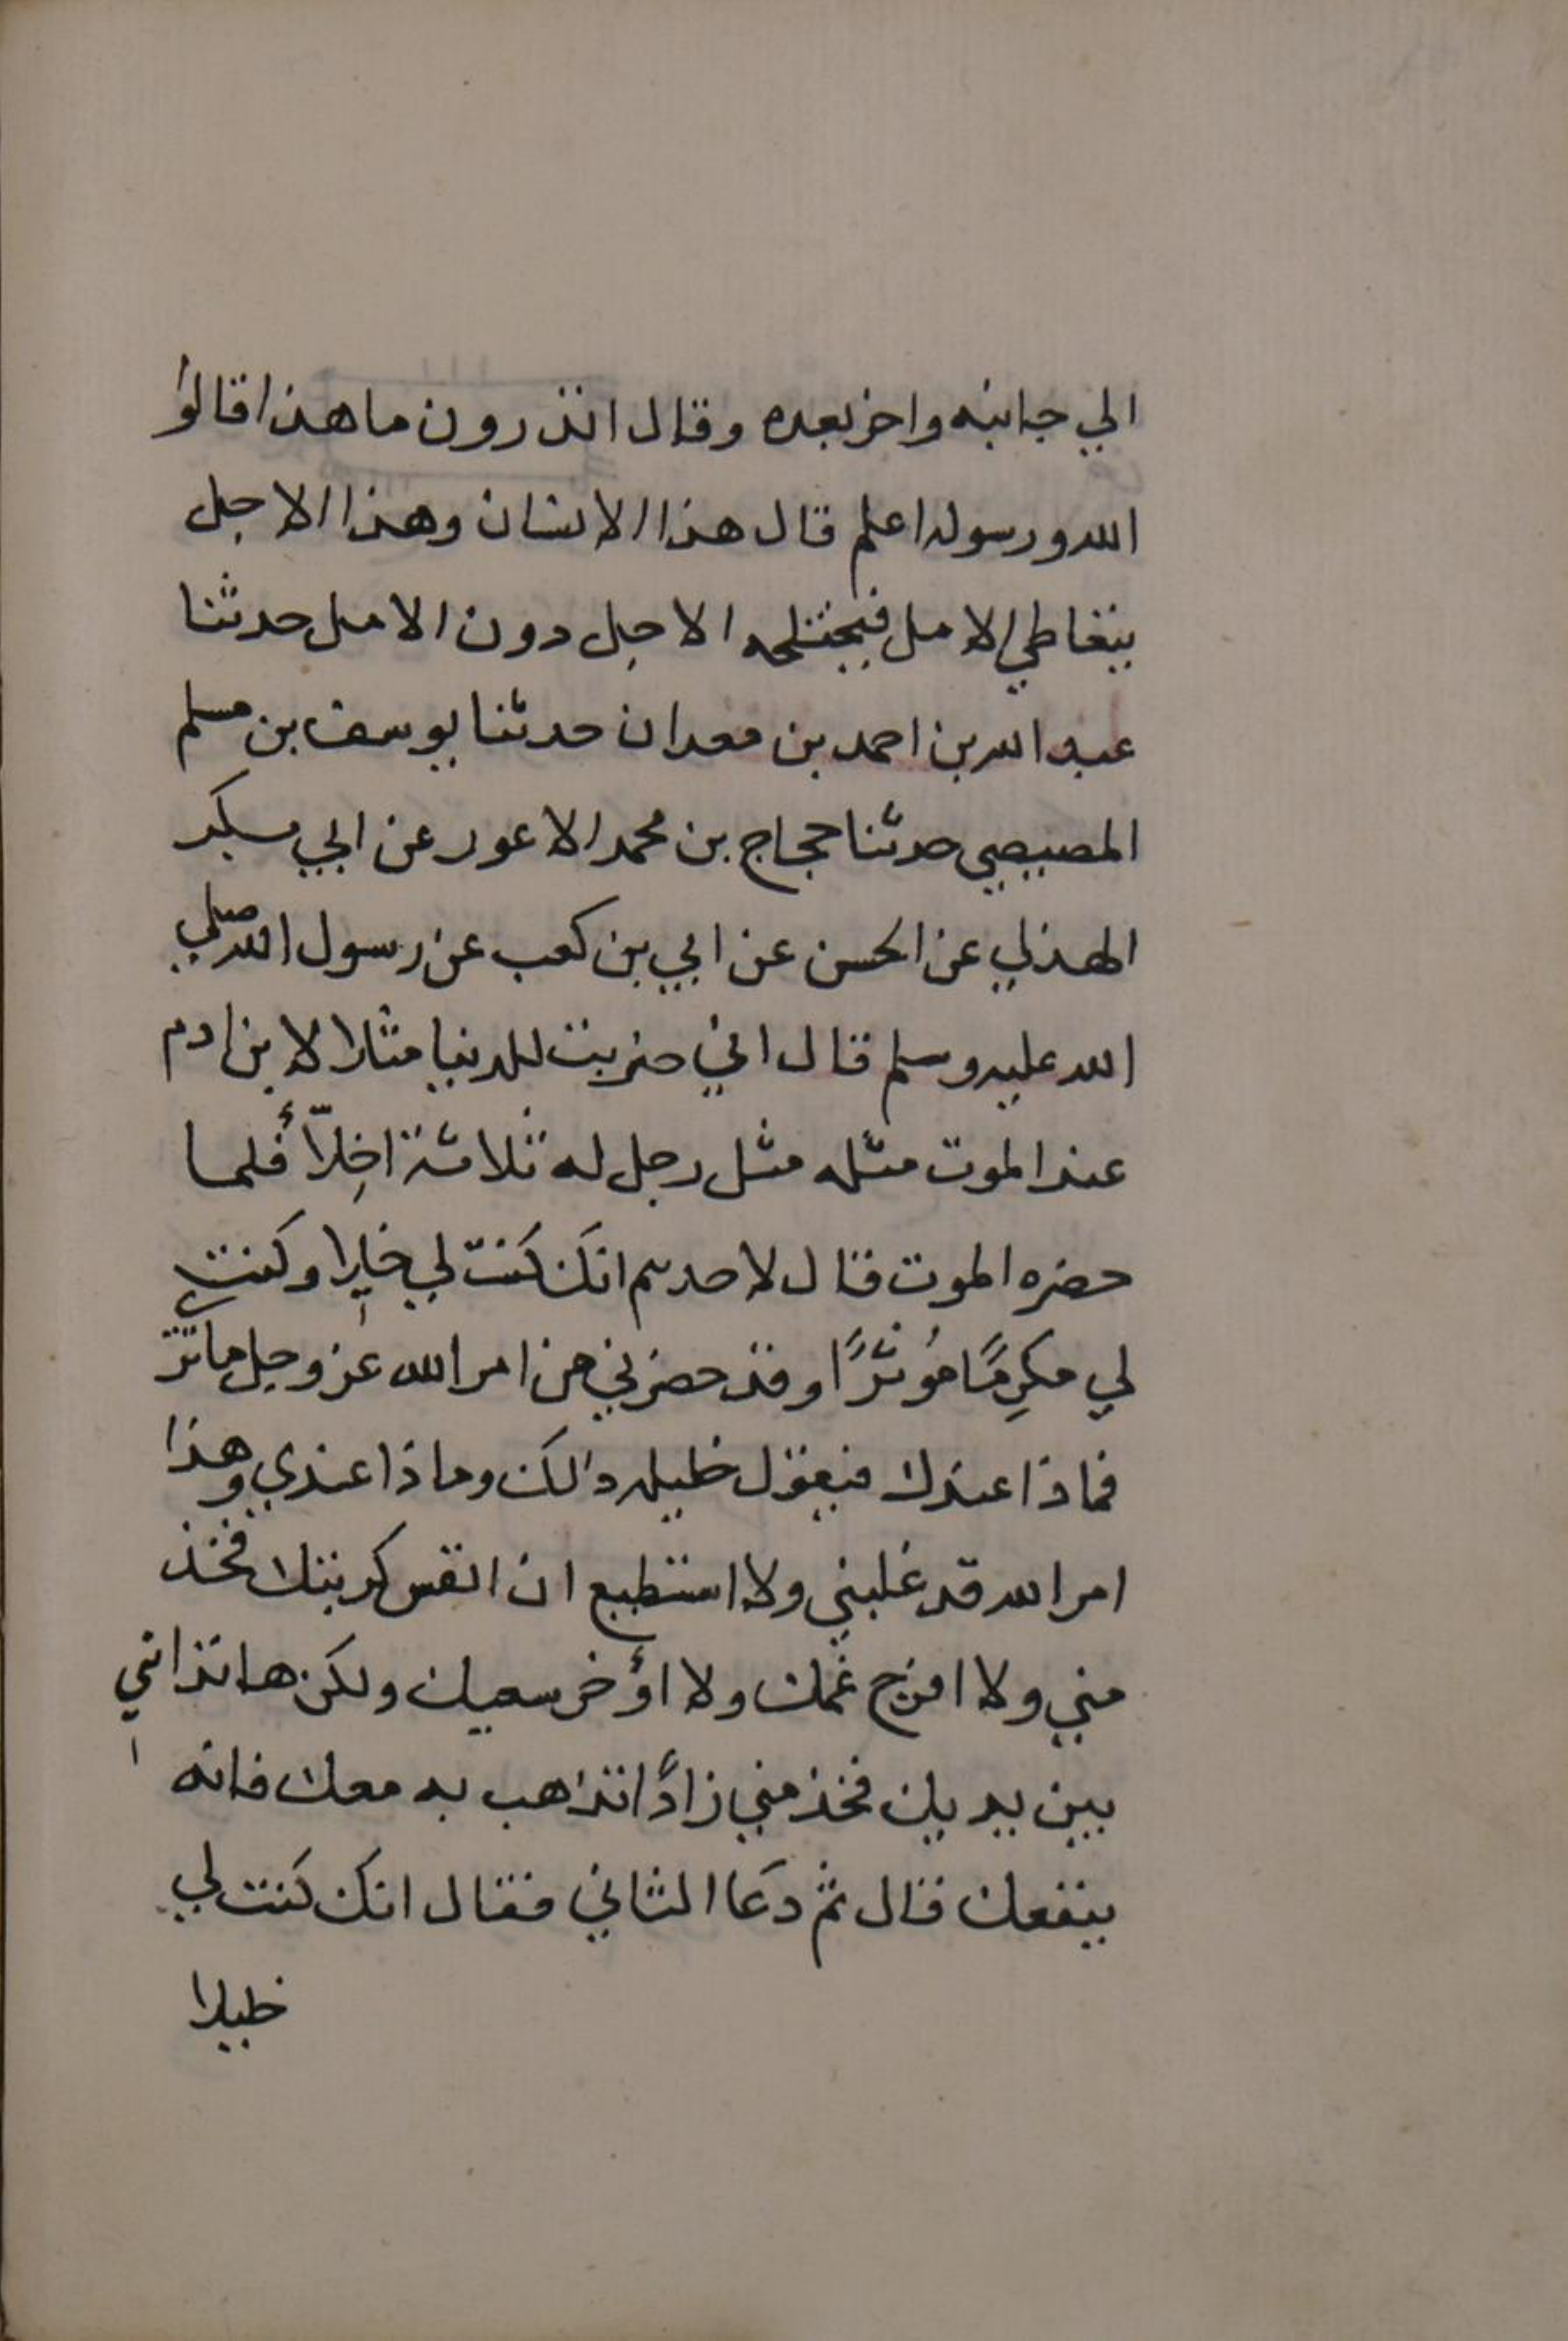 الي جانبه واخر بعده وقال اتدرون ما هذا قالوا
الله ورسوله اعلم قال هذا الانسان وهذا الاجل
يتعاطي الامل فيختلجه الاجل دون الامل حدثنا
عبد الله بن احمد بن معدان حدثنا يوسف بن مسلم
المصيصي حدثنا حجاج بن محمد الاعور عن ابي بكر
الهذلي عن الحسن عن ابي بن كعب عن رسول الله صلي
الله عليه وسلم قال اني ضربت للدنيا مثلا لابن ادم
عند الموت مثله مثل رجل له ثلاثة اخِلّاء فلما
حضره الموت قال لاحدهم انك كنت لي خليلا وكنت
لي مكرِمًا مُوثرًا وقد حضرني من امر الله عز وجل ما تر
فماذا عندك فيقول خليله ذالك وماذا عندي وهذا
امر الله قد غلبني ولا استطيع ان انفس كربتك فخذ
مني ولا افرج غمك ولا اؤخر سعيك ولكن ها نذا ني
بين يديك فخذ مني زادًا تذهب به معك فانه
ينفعك قال ثم دعَا الثاني فقال انك كنت لي
خليلا